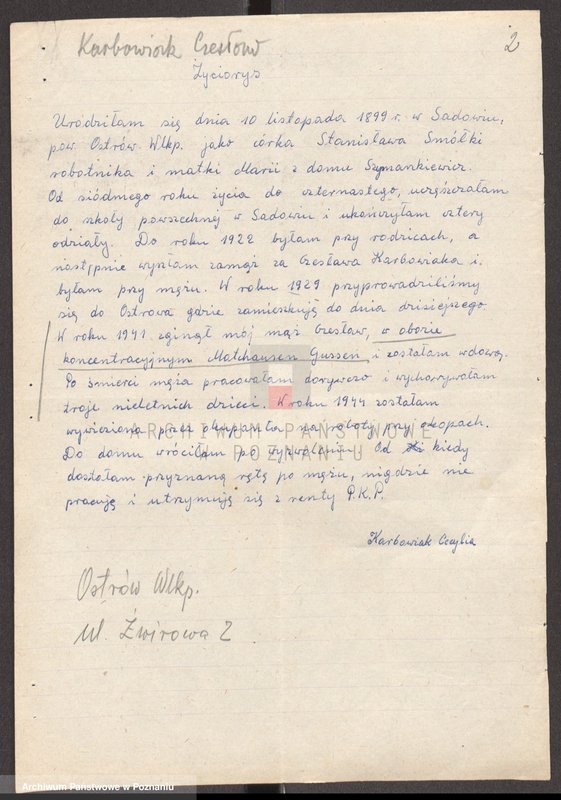 Karbowiak Czesław
2
Życiorys
Urodziłam się dnia 10 listopada 1899 r. w Sadowiu,
pow. Ostrów Wlkp. jako córka Stanisława Smółki
robotnika i matki Marii z domu Szymankiewicz.
Od siódmego roku życia do czternastego, uczęszczałam
do szkoły powszechnej w Sadowiu i ukończyłam cztery
odziały. Do roku 1922 byłam przy rodzicach, a
następnie wyszłam zamąż za Czesława Karbowiaka i
byłam przy mężu. W roku 1929 przyprowadziliśmy
się do Ostrowa gdzie zamieszkuję do dnia dzisiejszego.
W roku 1941 zginął mój mąż Czesław, w obozie
koncentracyjnym Mathausen Gussen, i zostałam wdową.
Po śmierci męża pracowałam dorywczo i wychowywałam
troje nieletnich dzieci. W roku 1944 zostałam
wywieziona przez okupanta na roboty przy okopach.
Do domu wróciłam po wyzwoleniu. Od kiedy
dostałam przyznaną rętę po mężu, nigdzie nie
pracuję i utrzymuję się z renty P.K.P.
Karbowiak Cecylia
Ostrów Wlkp.
ul. Żwirowa 2
ARCHIWUM PAŃSTWOWE
W POZNANIU
Archiwum Państwowe w Poznaniu